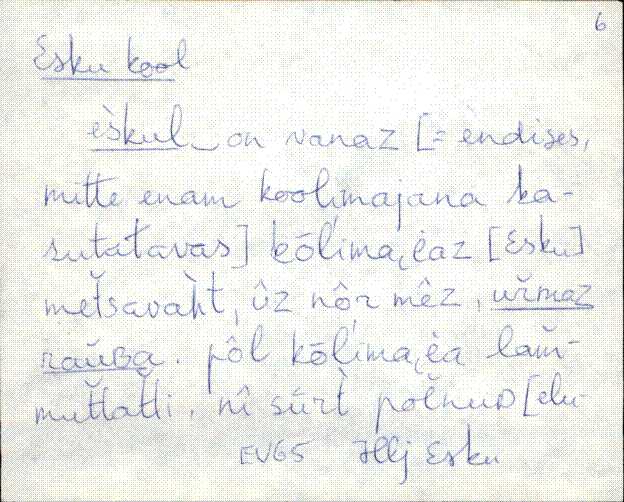 6
Esku kool
èskul on vanaz [= èndises,
mitte enam koolimajana ka-
sutatavas] kōl̦ima̮ėaz [Esku]
metsavaht, ûz nôr mêz, uřmaz
rauʙa. pôl kōl̦ima̮ėa lam̆-
muttatti. nî sūrt̀ põlnuᴅ [elu-
EV65 Illj Esku